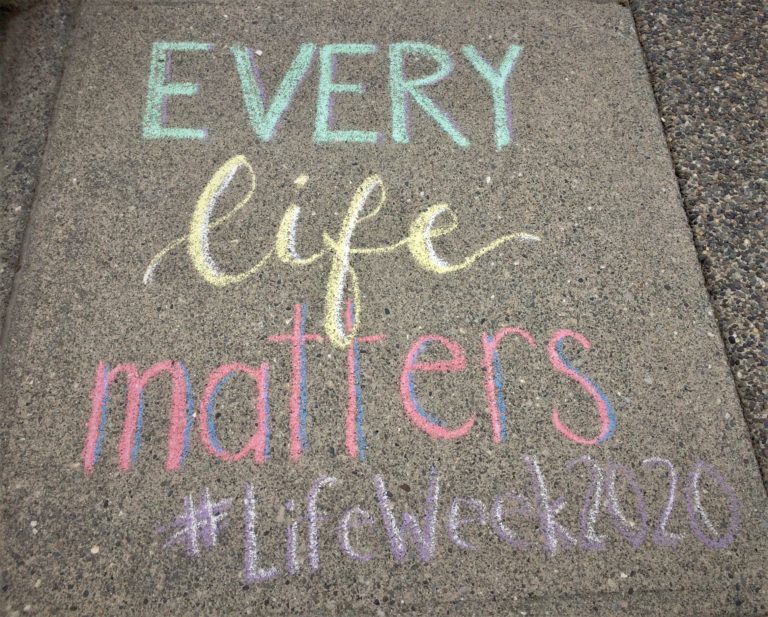 EVERY
life
matters
#LifeWeek2020